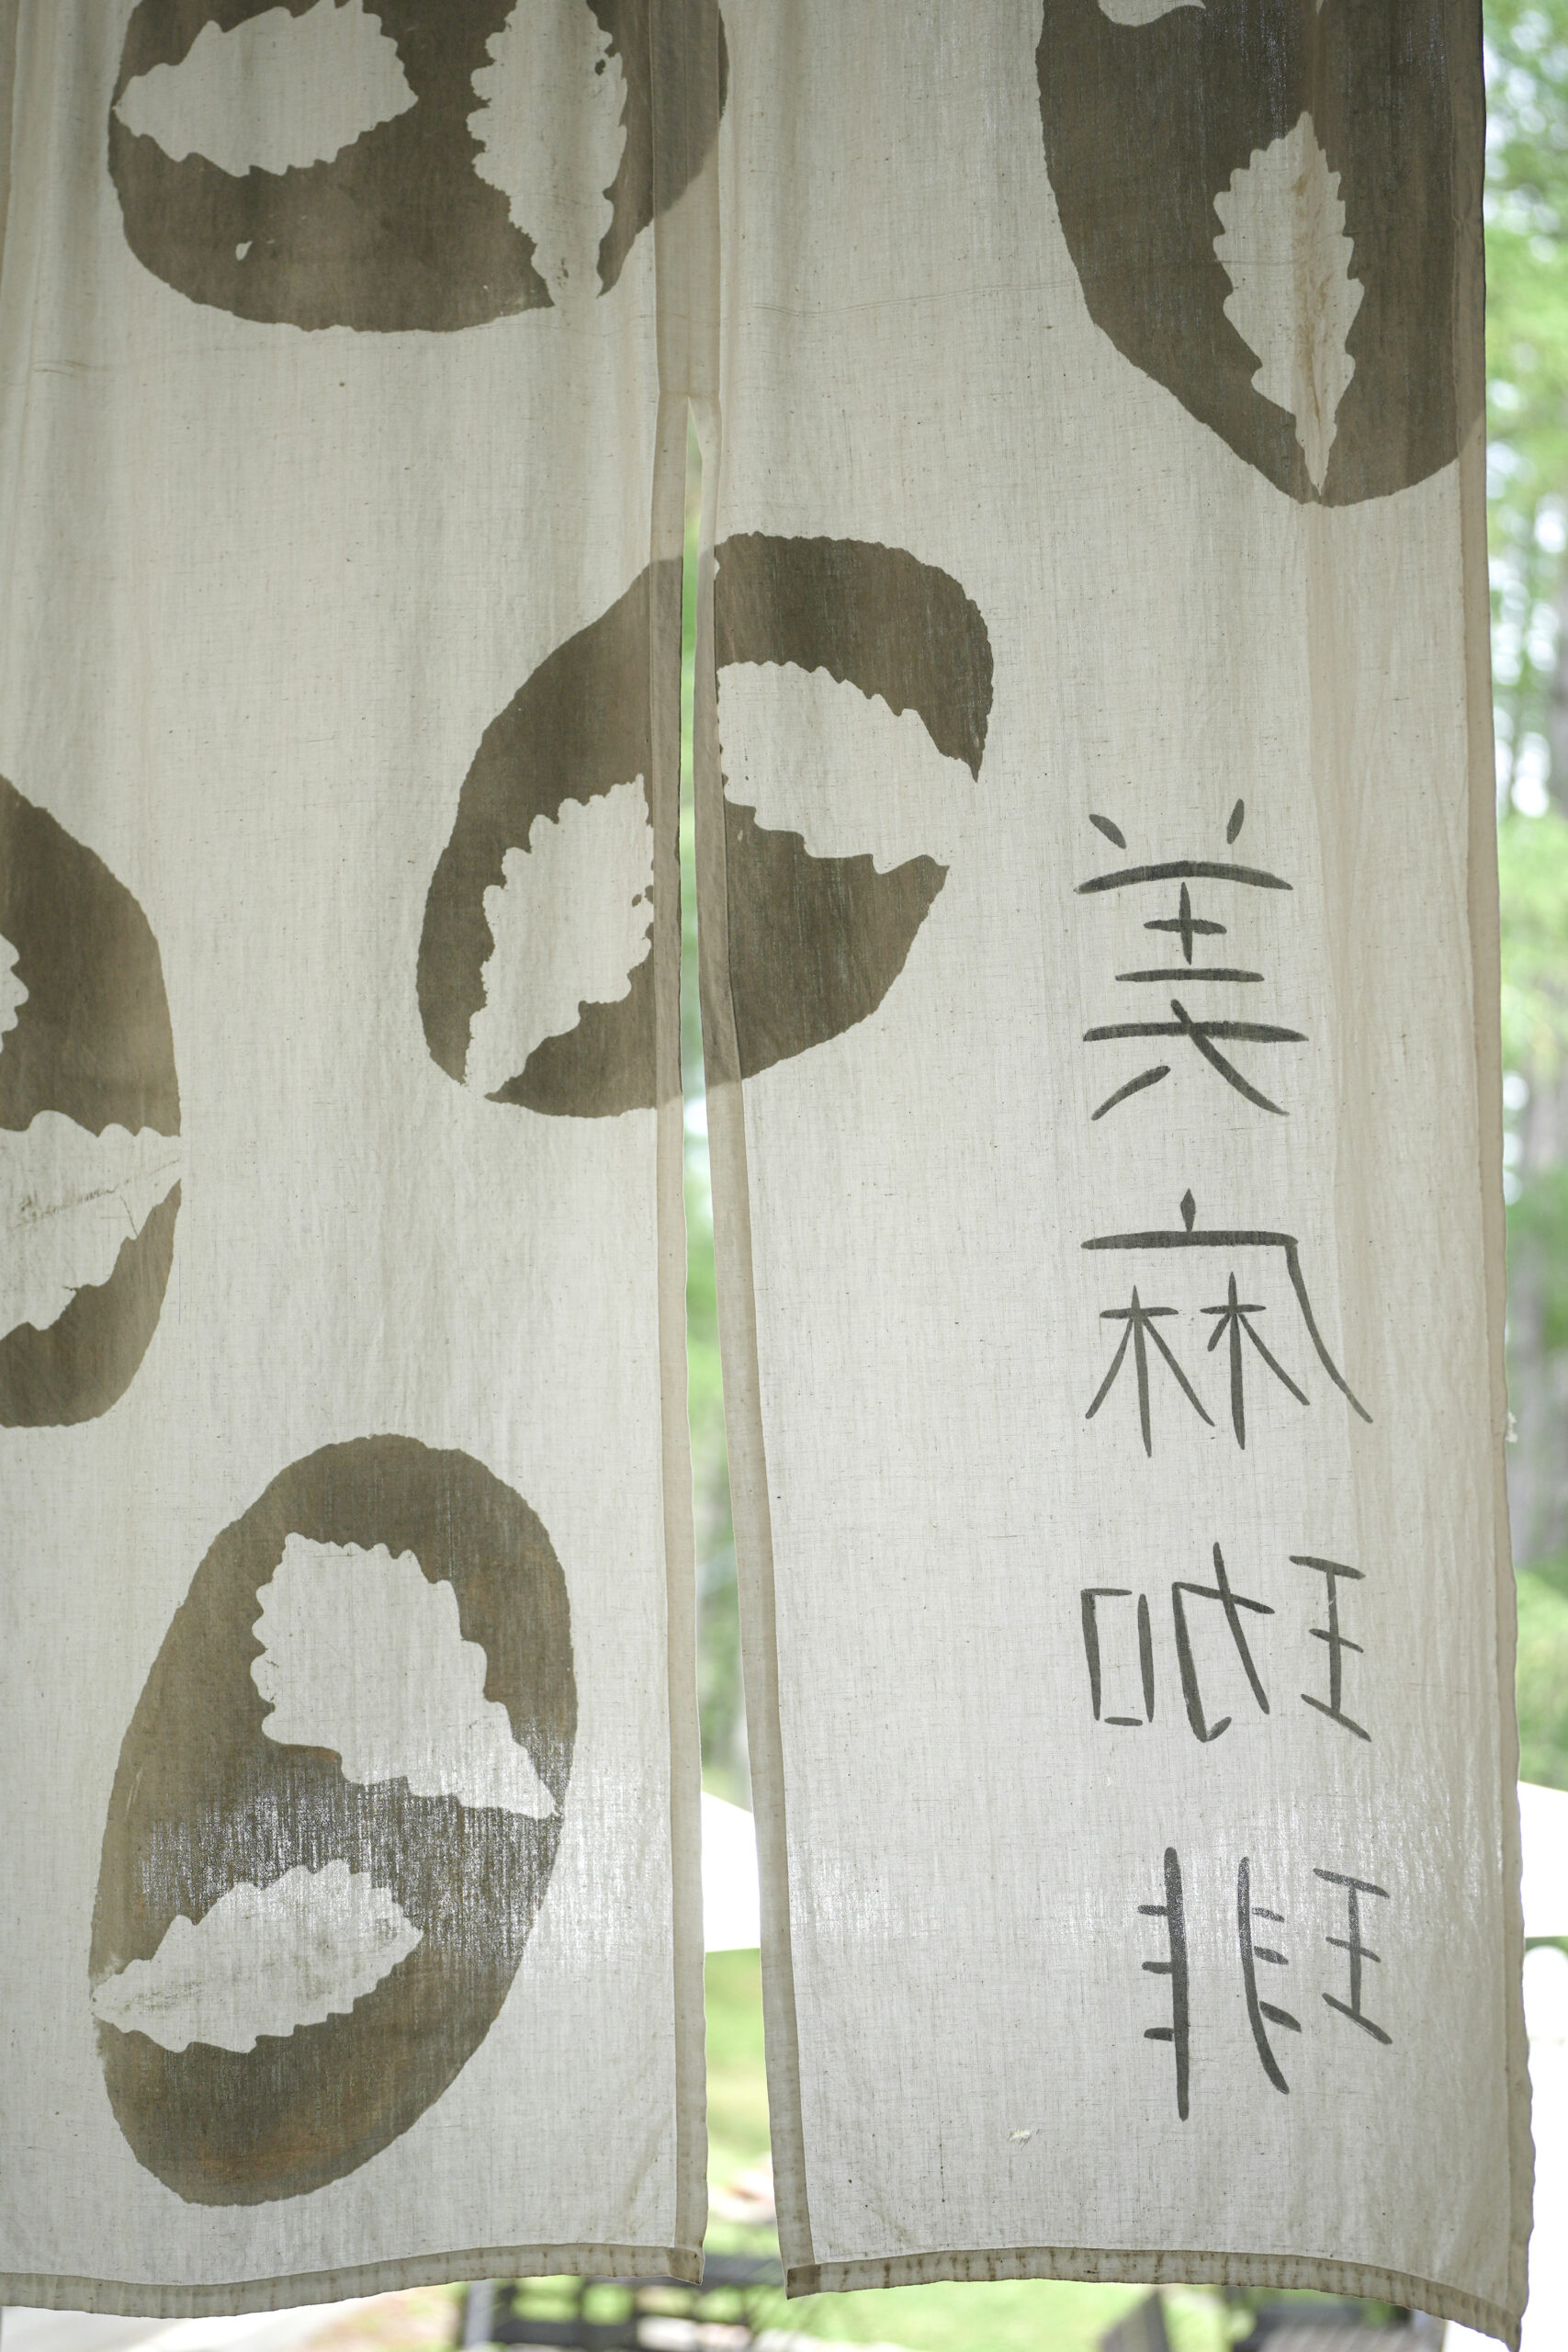 美麻珈琲